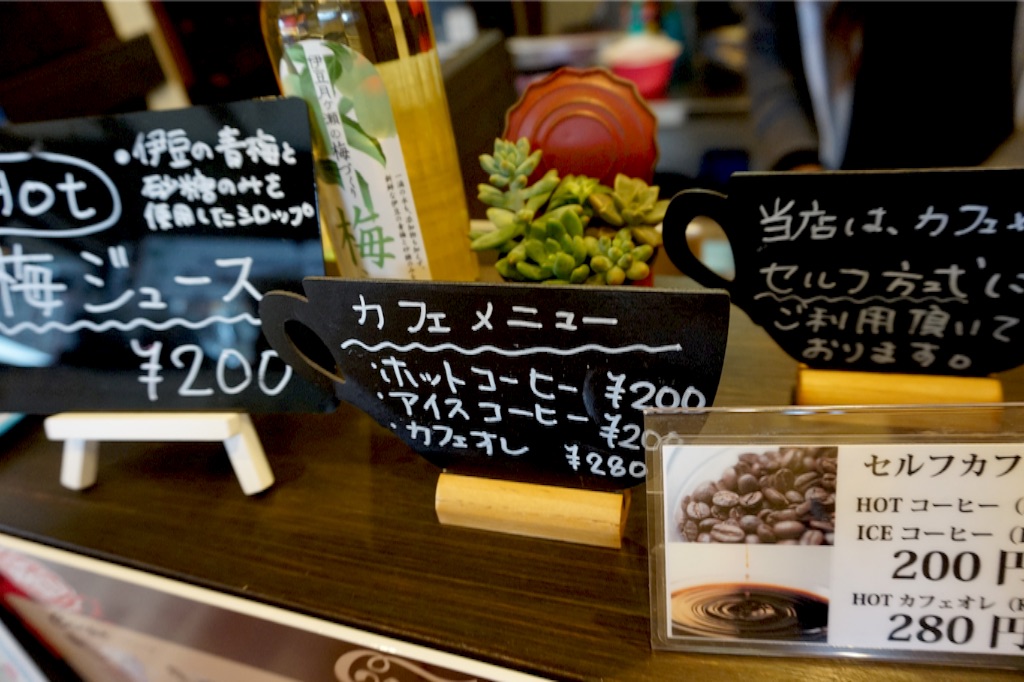 Hot
・伊豆の青梅と
砂糖のみを
使用したシロップ。
梅ジュース
¥200
伊豆月ヶ瀬の梅づくり
梅
カフェメニュー
・ホットコーヒー ¥200
・アイスコーヒー ¥200
・カフェオレ ¥280
当店は、カフェ
セルフ方式に
ご利用頂いて
おります。
セルフカフ
HOT コーヒー（
ICE コーヒー（
200 円
HOT カフェオレ（
280 円